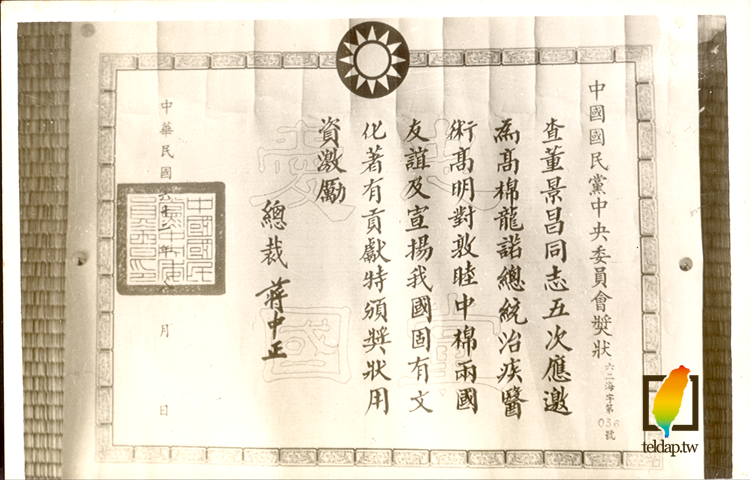 中國國民黨中央委員會獎狀
六二海字第
036
號
查董景昌同志五次應邀
為高棉龍諾總統治疾醫
術高明對敦睦中棉兩國
友誼及宣揚我國固有文
化著有貢獻特頒獎狀用
資激勵
總裁 蔣中正
中華民國
年
月
日
中國國民
黨中央委
員會印
忠
愛
國
teldap.tw